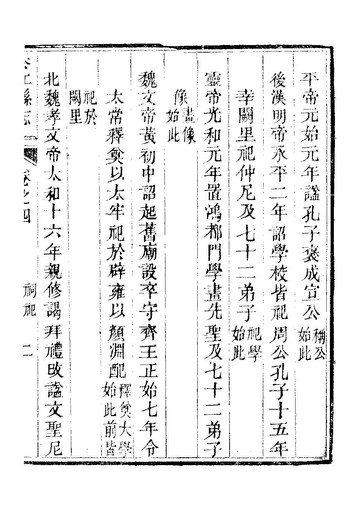 平帝元始元年諡孔子褒成宣公稱公始此
後漢明帝永平二年詔學校皆祀周公孔子十五年
幸闕里祀仲尼及七十二弟子祀學始此
靈帝光和元年置鴻都門學畫先聖及七十二弟子
像畫像始此
魏文帝黃初中詔起舊廟設卒守齊王正始七年令
太常釋奠以太牢祀於辟雍以顏淵配釋奠大學始此前皆
祀於闕里
北魏孝文帝太和十六年親修謁拜禮改諡文聖尼
縣志
卷之四
祠祀
二